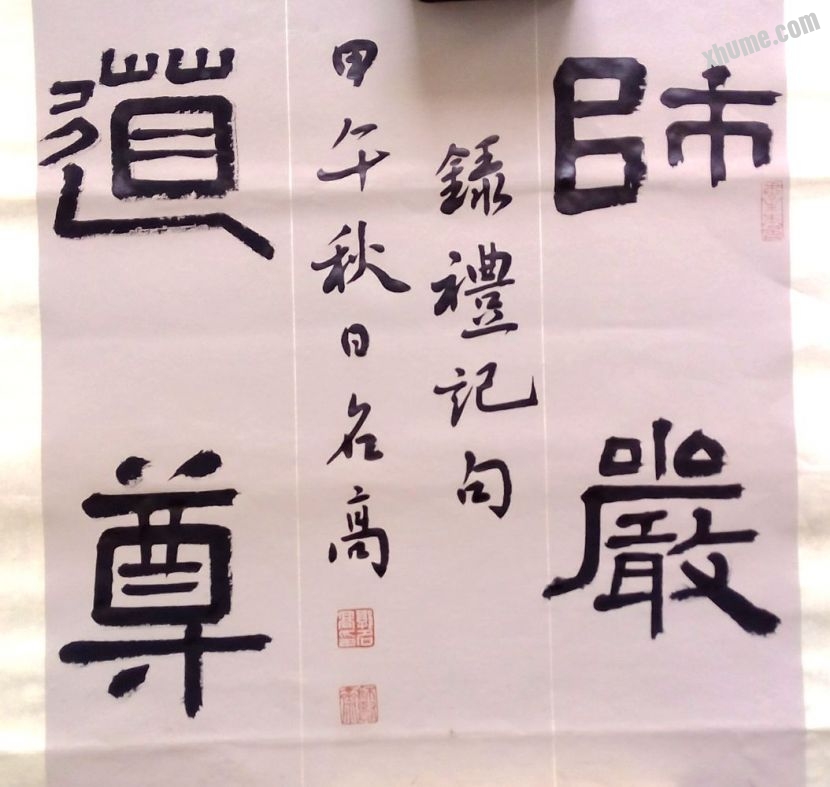 師嚴
道尊
錄禮記句
甲午秋日名高
xhume.com